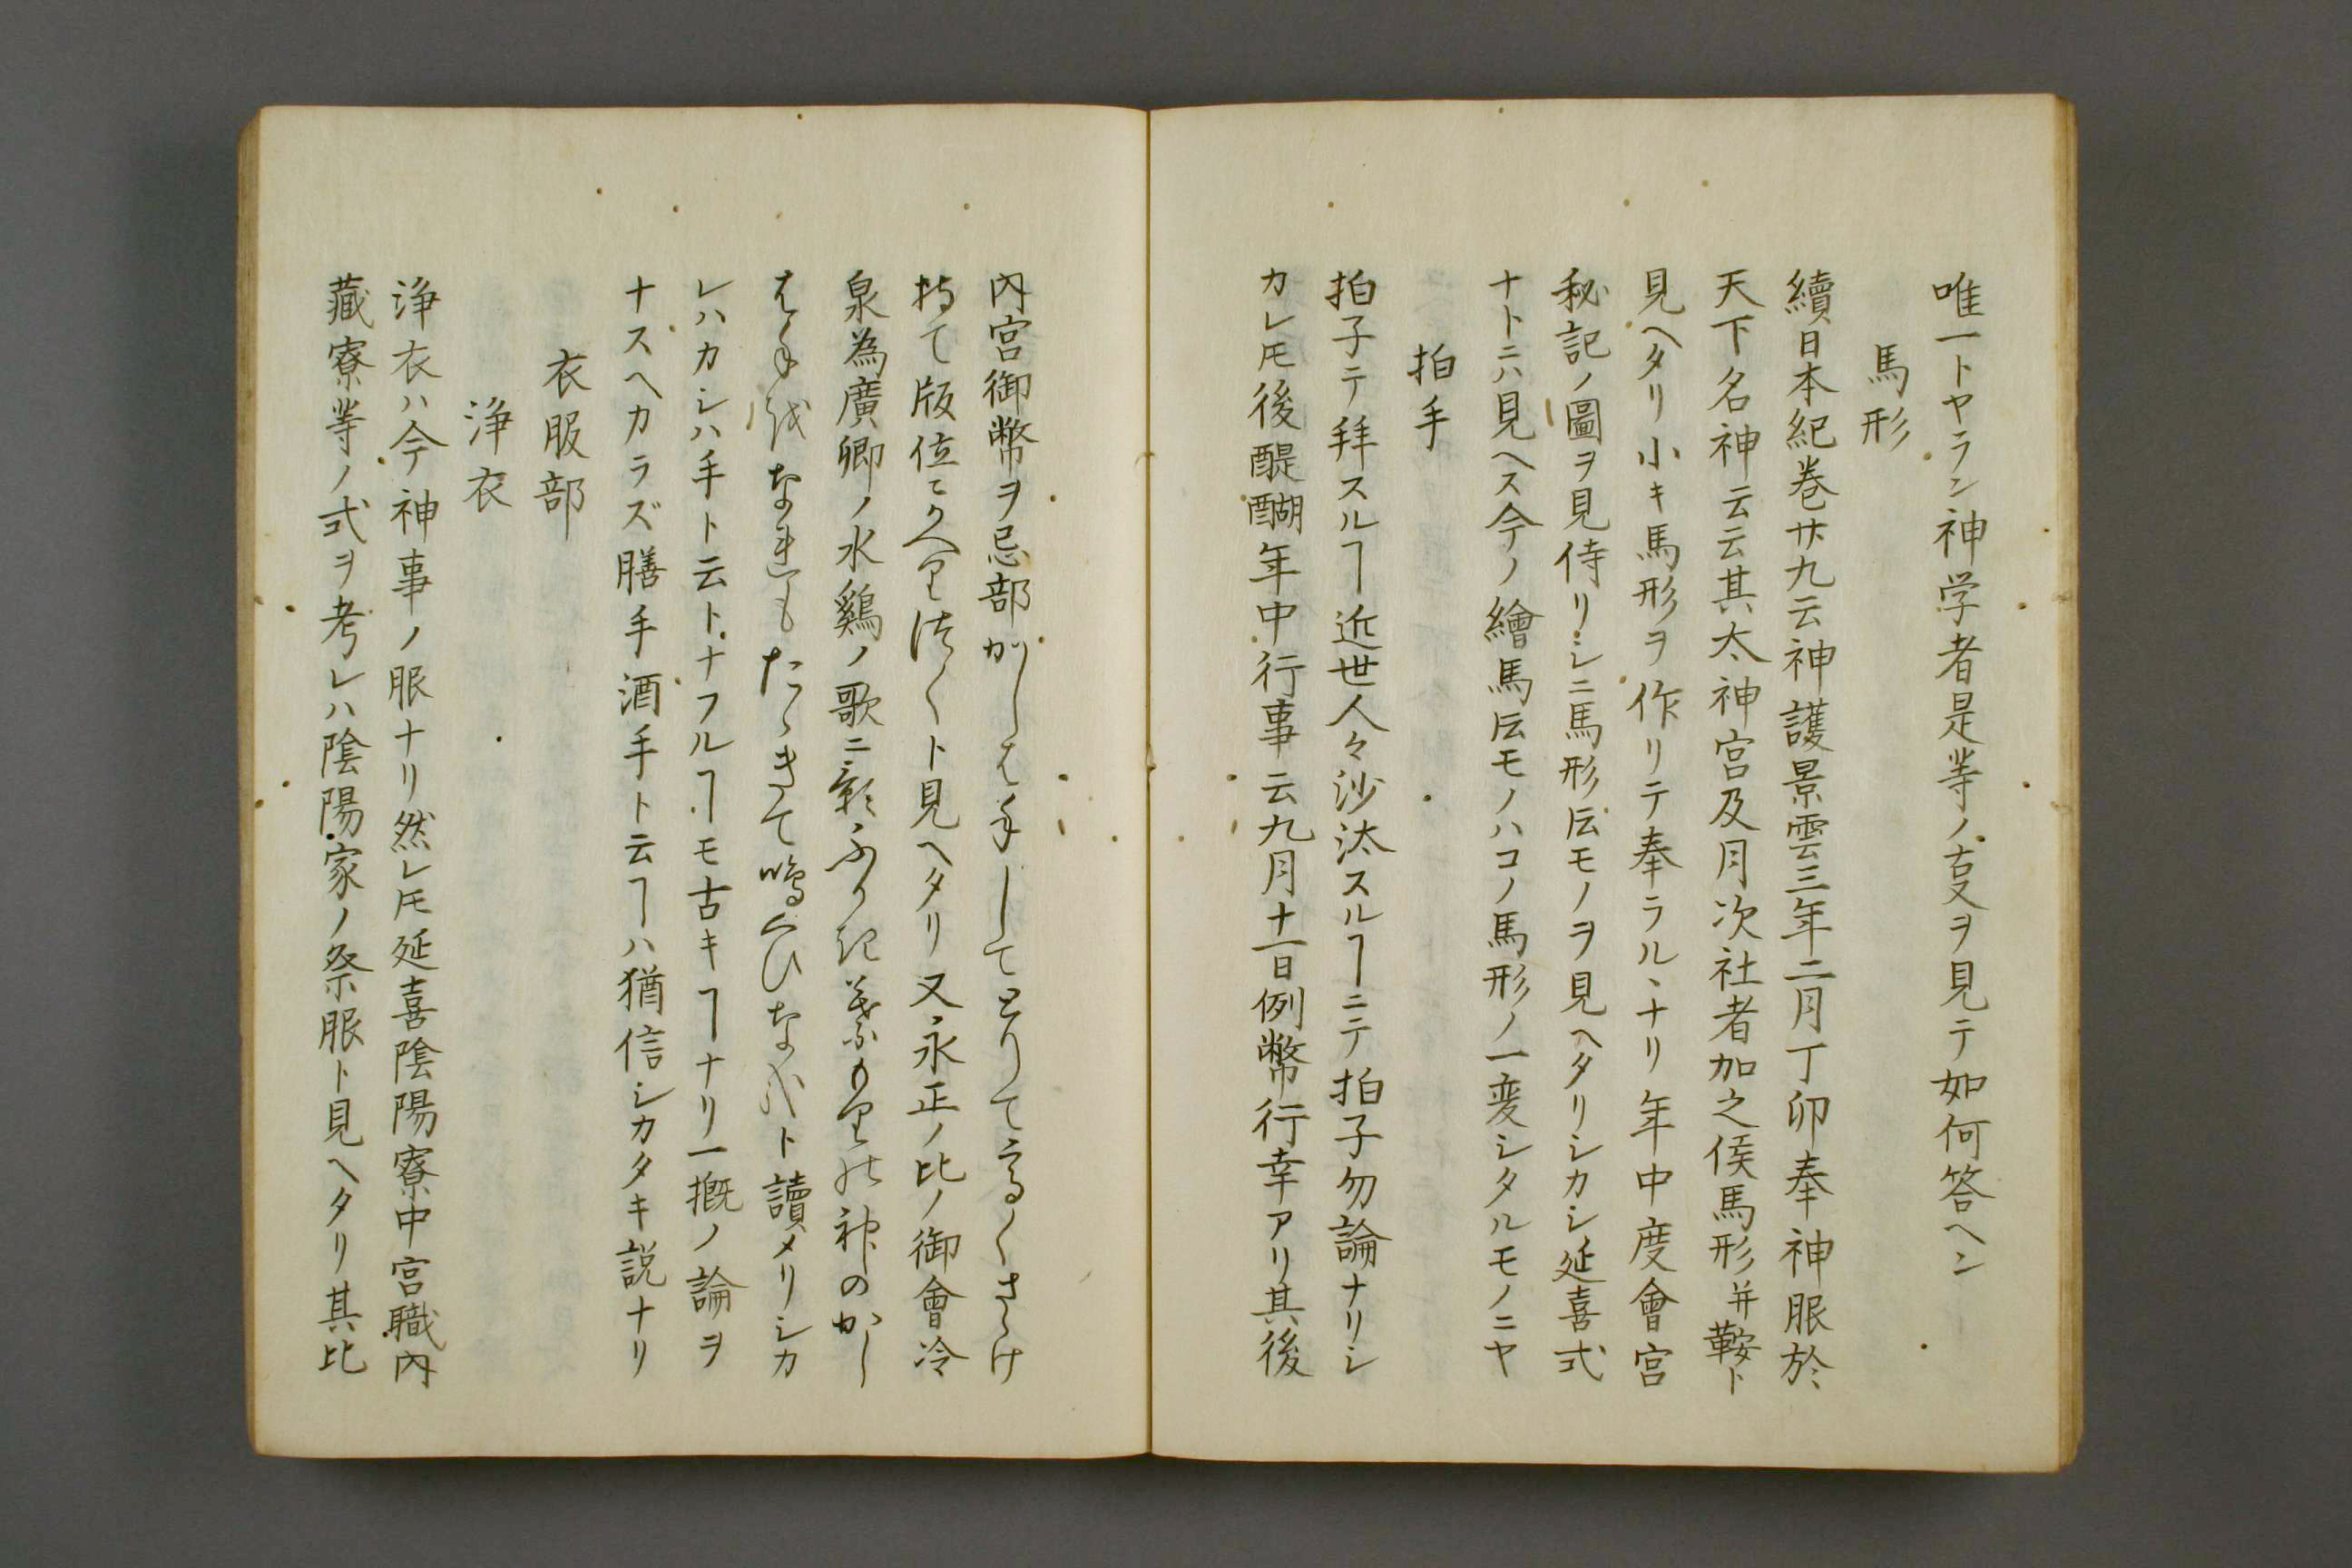 唯一トヤラン神学者是等ノ㕝ヲ見テ如何答ヘン
馬形
續日本紀巻廿九云神護景雲三年二月丁卯奉神服於
天下名神云云其太神宮及月次社者加之侯馬形并鞍ト
見ヘタリ小キ馬形ヲ作リテ奉ラルヽナリ年中度會宮
秘記ノ圖ヲ見侍リシニ馬形𪜈モノヲ見ヘタリシカシ延喜式
ナトニハ見ヘス今ノ繪馬𪜈モノハコノ馬形ノ一変シタルモノニヤ
拍手
拍子テ拜スルヿ近世人々沙汰スルヿニテ拍子勿論ナリシ
カレ𪜈後醍醐年中行事云九月十一日例幣行幸アリ其後
内宮御幣ヲ忌部かしは手してとりてしるくさゝけ
持て版位にかへりつくト見ヘタリ又永正ノ比ノ御會冷
泉為廣卿ノ水鷄ノ歌ニ影ふかき葉もりの神のかし
は手をなれもたゝきて鳴くひなかト讀メリシカ
レハカシハ手ト云トナフルヿモ古キヿナリ一概ノ論ヲ
ナスヘカラズ膳手酒手ト云ヿハ猶信シカタキ説ナリ
衣服部
浄衣
浄衣ハ今神事ノ服ナリ然レ𪜈延喜陰陽寮中宮職内
藏寮等ノ式ヲ考レハ陰陽家ノ祭服ト見ヘタリ其比